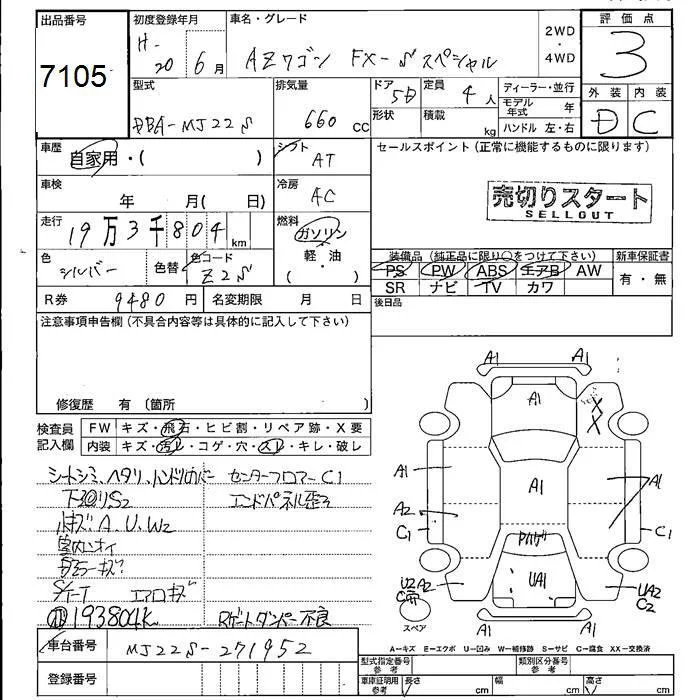 出品番号
7105
初度登録年月
H-20 6月
車名・グレード
AZワゴン FX-Sスペシャル
2WD
・
4WD
評価点
3
外装 内装
D C
型式
DBA-MJ22S
排気量
660 cc
ドア 5D
形状
定員 4人
積載 kg
ディーラー・並行
モデル年式 年
ハンドル 左・右
車歴
自家用・( )
シフト AT
車検
年 月( 日)
冷房 AC
走行
19万3千804 km
燃料
ガソリン
・
軽・油
( )
色
シルバー
色替
色コード
Z2S
R券 9480円
名変期限 月 日
セールスポイント (正常に機能するものに限ります)
売切りスタート
SELLOUT
装備品 (純正品に限り○をつけて下さい)
新車保証書
PS PW ABS エアB AW
有・無
SR ナビ TV カワ
後日品
注意事項申告欄 (不具合内容等は具体的に記入して下さい)
修復歴 有 〔箇所 〕
検査員記入欄
FW キズ・飛石・ヒビ割・リペア跡・X要
内装 キズ・汚レ・コゲ・穴・スレ・キレ・破レ
シートシミ、ヘタリ、ハンドルカバー
センターフロアーC1
S2
エンドパネル歪ミ
キズ A、U、W2
室内ニオイ
エアロキズ
193804K
Rゲートダンパー不良
車台番号 MJ22S-271952
登録番号
A1 A1
A1
X
X
A1
A1
A1
A2
C1
C1
UA1
U2 A2
C
UA2
C2
スペア
A1 A1
A-キズ E-エクボ U-凹み W-補修跡 S-サビ C-腐食 XX-交換済
型式指定番号 参考
類別区分番号 参考
車庫証明用 参考
長さ cm
幅 cm
高さ cm